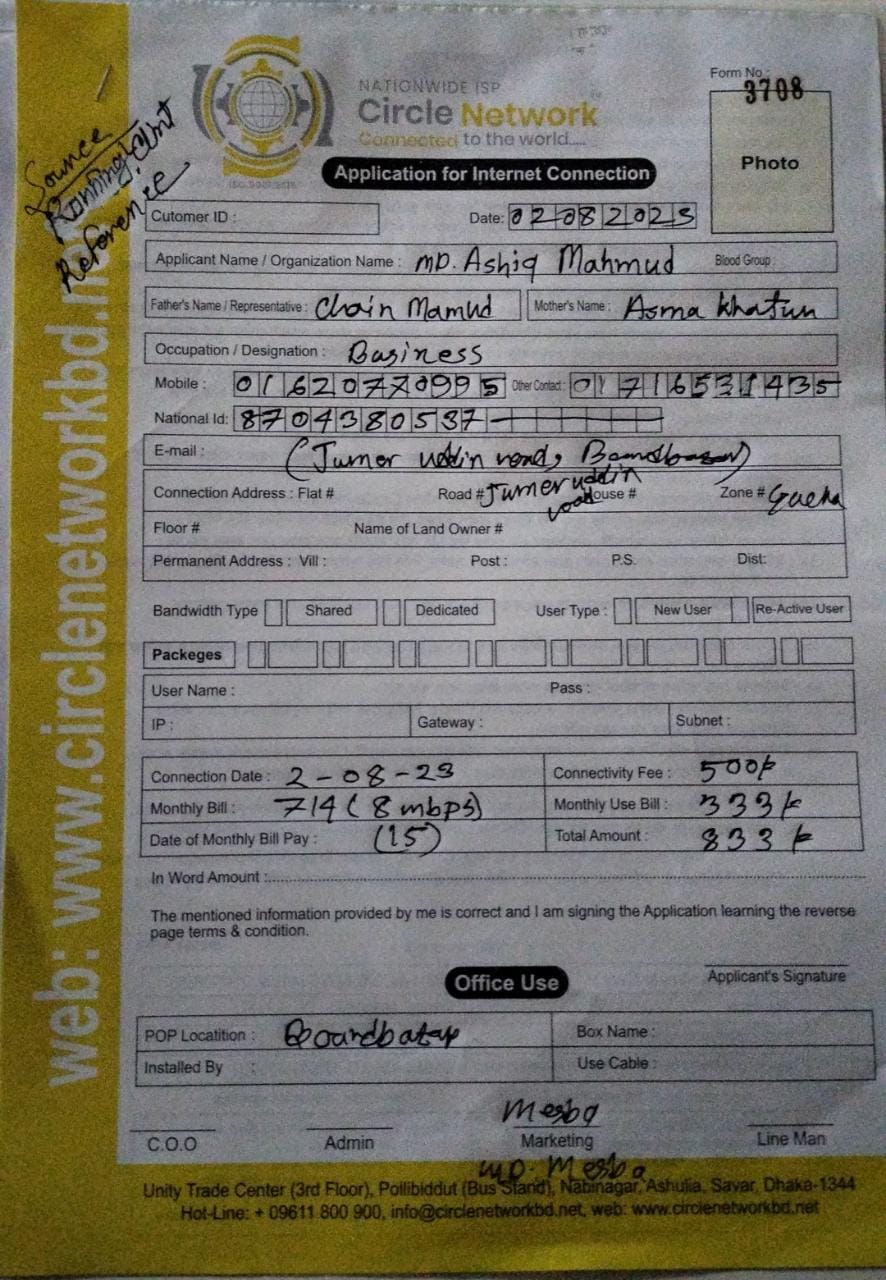 NATIONWIDE ISP
Circle Network
Connected to the world.....
Form No :
3708
Photo
Application for Internet Connection
Source
Running Clint
Reference
Cutomer ID :
Date: 02082023
Applicant Name / Organization Name : MD. Ashiq Mahmud Blood Group :
Father's Name / Representative : Chain Mamud Mother's Name : Asma Khatun
Occupation / Designation : Business
Mobile : 01620770995 Other Contact : 01716531435
National Id: 8704380537
E-mail : (Jumer uddin road,
Connection Address : Flat # Road # Jumer uddin road House # Zone # Gacha
Floor # Name of Land Owner #
Permanent Address : Vill : Post : P.S. Dist:
Bandwidth Type Shared Dedicated User Type : New User Re-Active User
Packeges
User Name : Pass :
IP : Gateway : Subnet :
Connection Date : 2-08-23 Connectivity Fee : 500/-
Monthly Bill : 714 (8 mbps) Monthly Use Bill : 333/-
Date of Monthly Bill Pay : (15) Total Amount : 833/-
In Word Amount :
The mentioned information provided by me is correct and I am signing the Application learning the reverse
page terms & condition.
Applicant's Signature
Office Use
POP Locatition : Box Name :
Installed By : Use Cable :
Mesba
C.O.O Admin Marketing Line Man
MD. Mesba
Unity Trade Center (3rd Floor), Pollibiddut (Bus Stand), Nabinagar, Ashulia, Savar, Dhaka-1344
Hot-Line: + 09611 800 900, info@circlenetworkbd.net, web: www.circlenetworkbd.net
web: www.circlenetworkbd.net